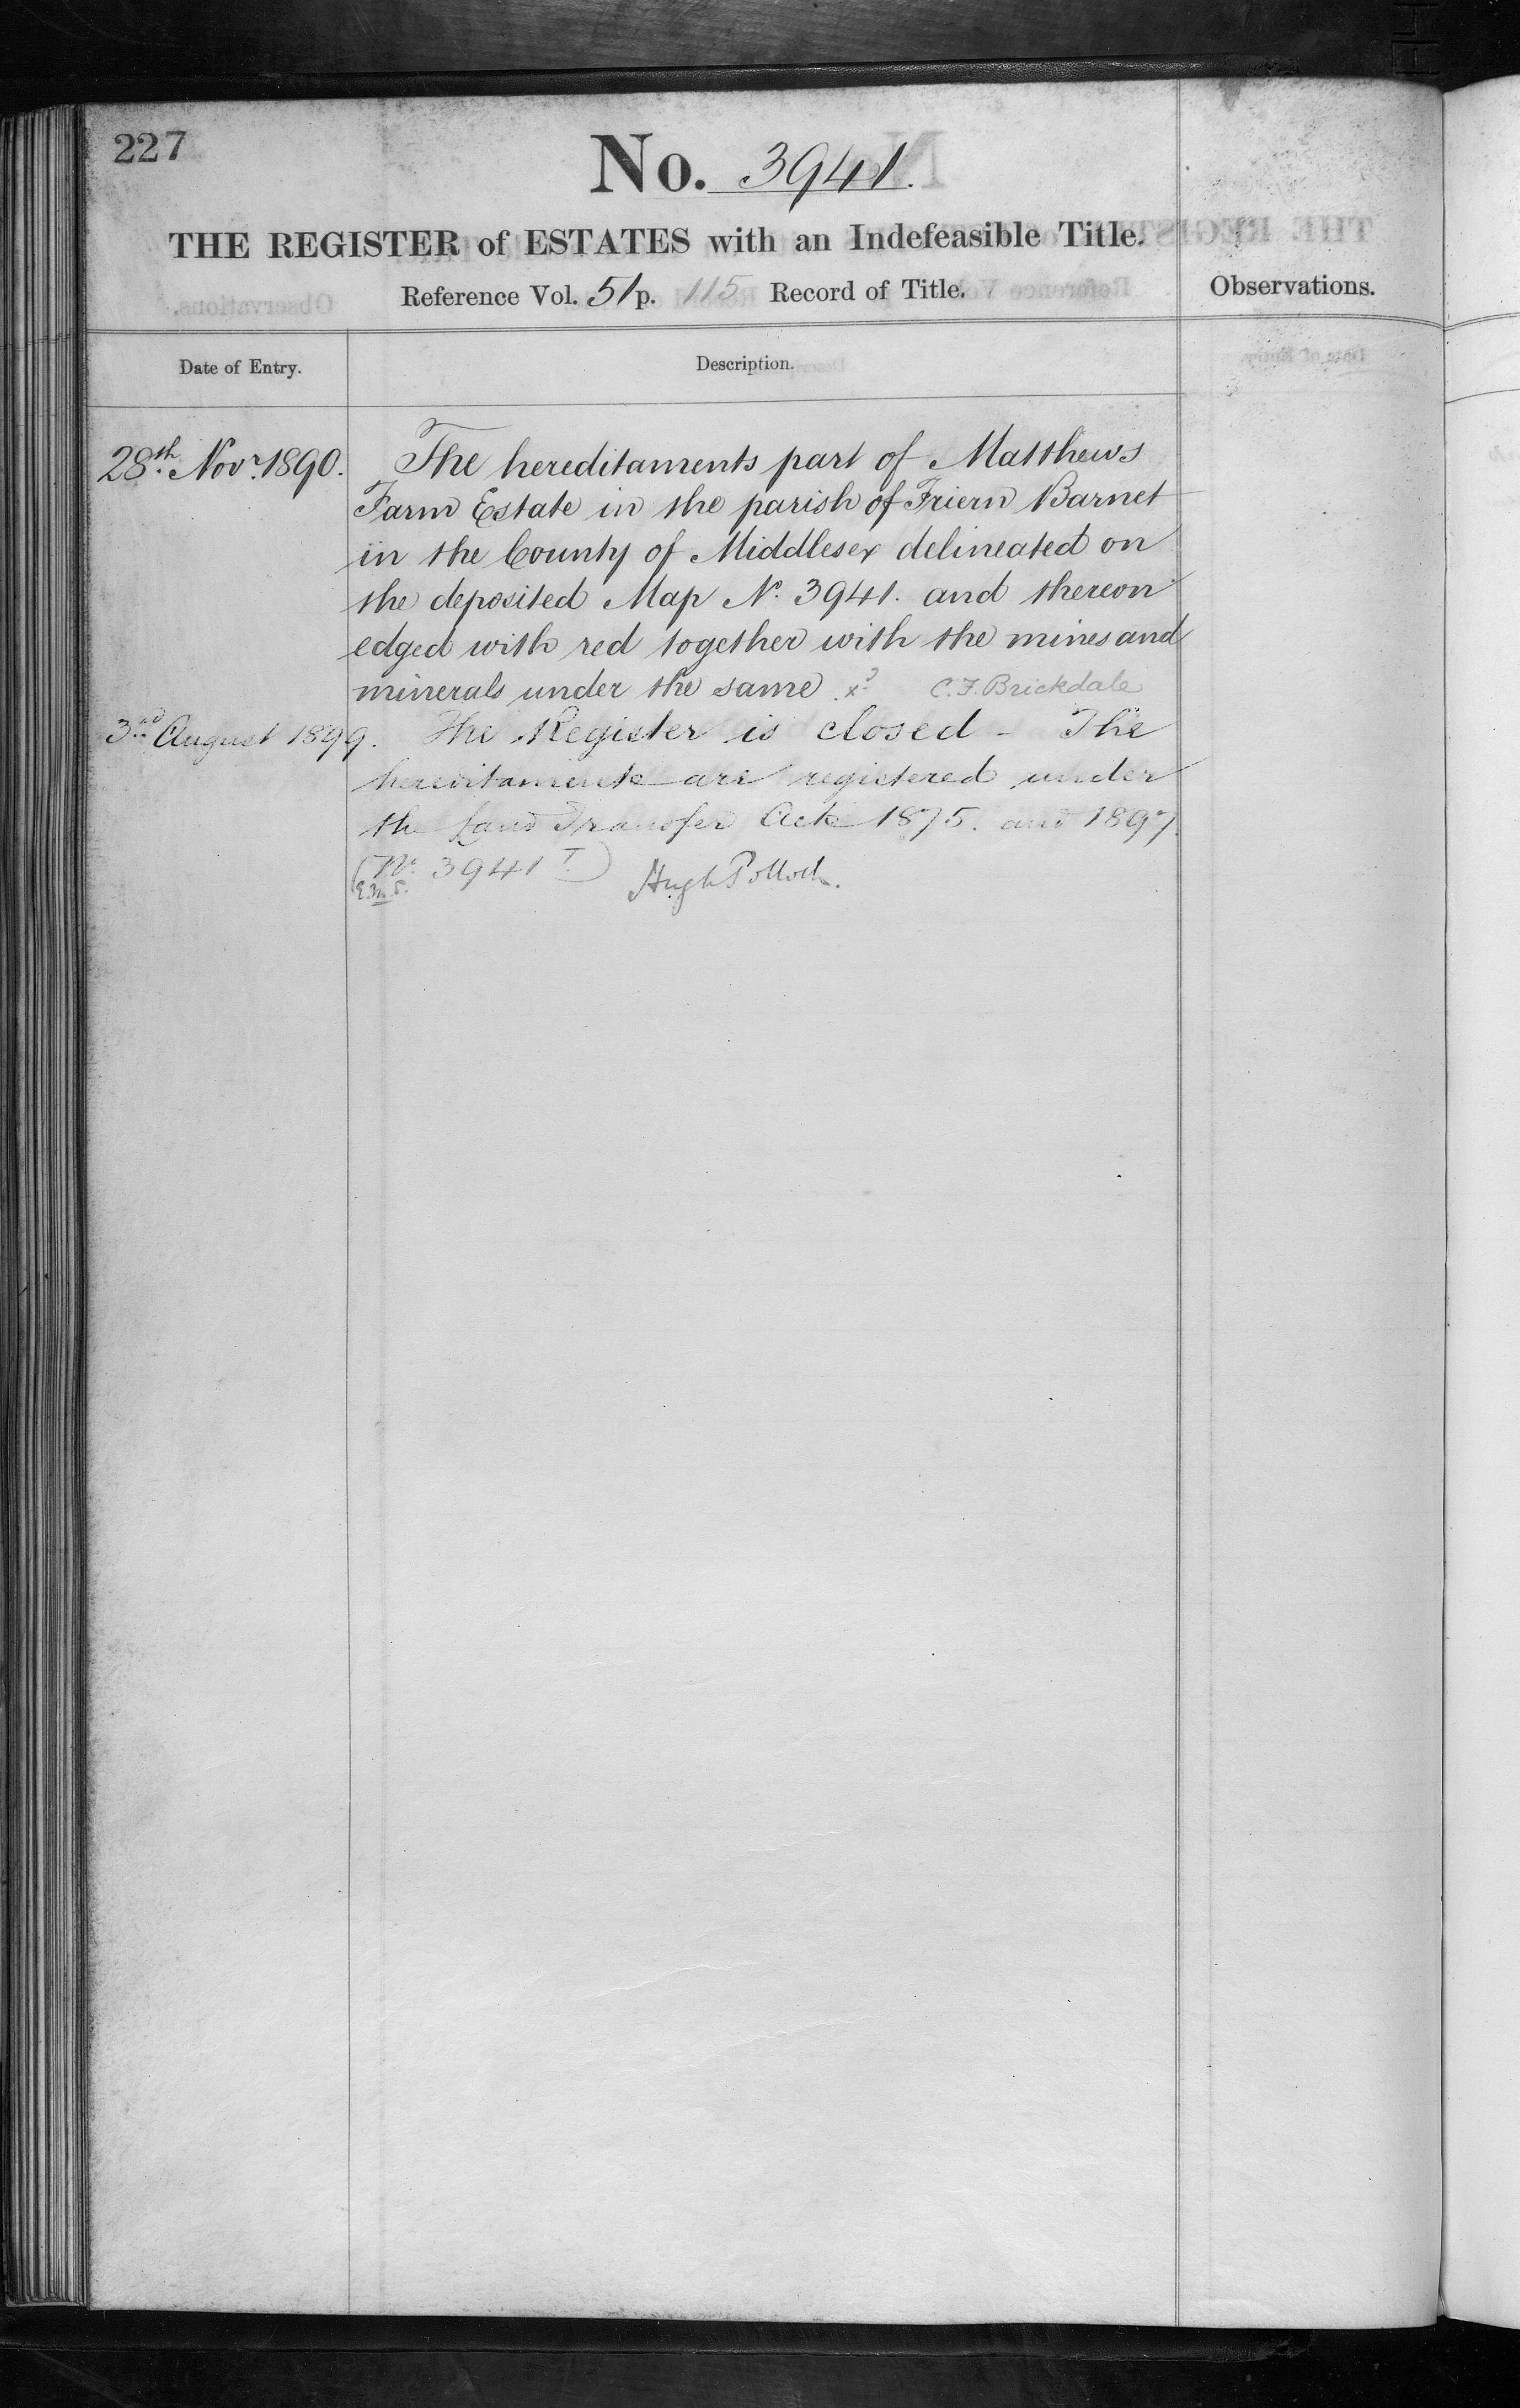 227
No. 3941.
THE REGISTER of ESTATES with an Indefeasible Title.
Reference Vol. 51 p. 115 Record of Title.
Observations.
Date of Entry.
Description.
28th Novr. 1890.
The hereditaments part of Matthews
Farm Estate in the parish of Friern Barnet
in the County of Middlesex delineated on
the deposited Map No. 3941. and thereon
edged with red together with the mines and
minerals under the same C.F. Brickdale
3rd August 1899.
The Register is closed - The
hereditaments are registered under
the Land Transfer Acts 1875. and 1897
(No. 3941 T.)
Hugh Pollock.